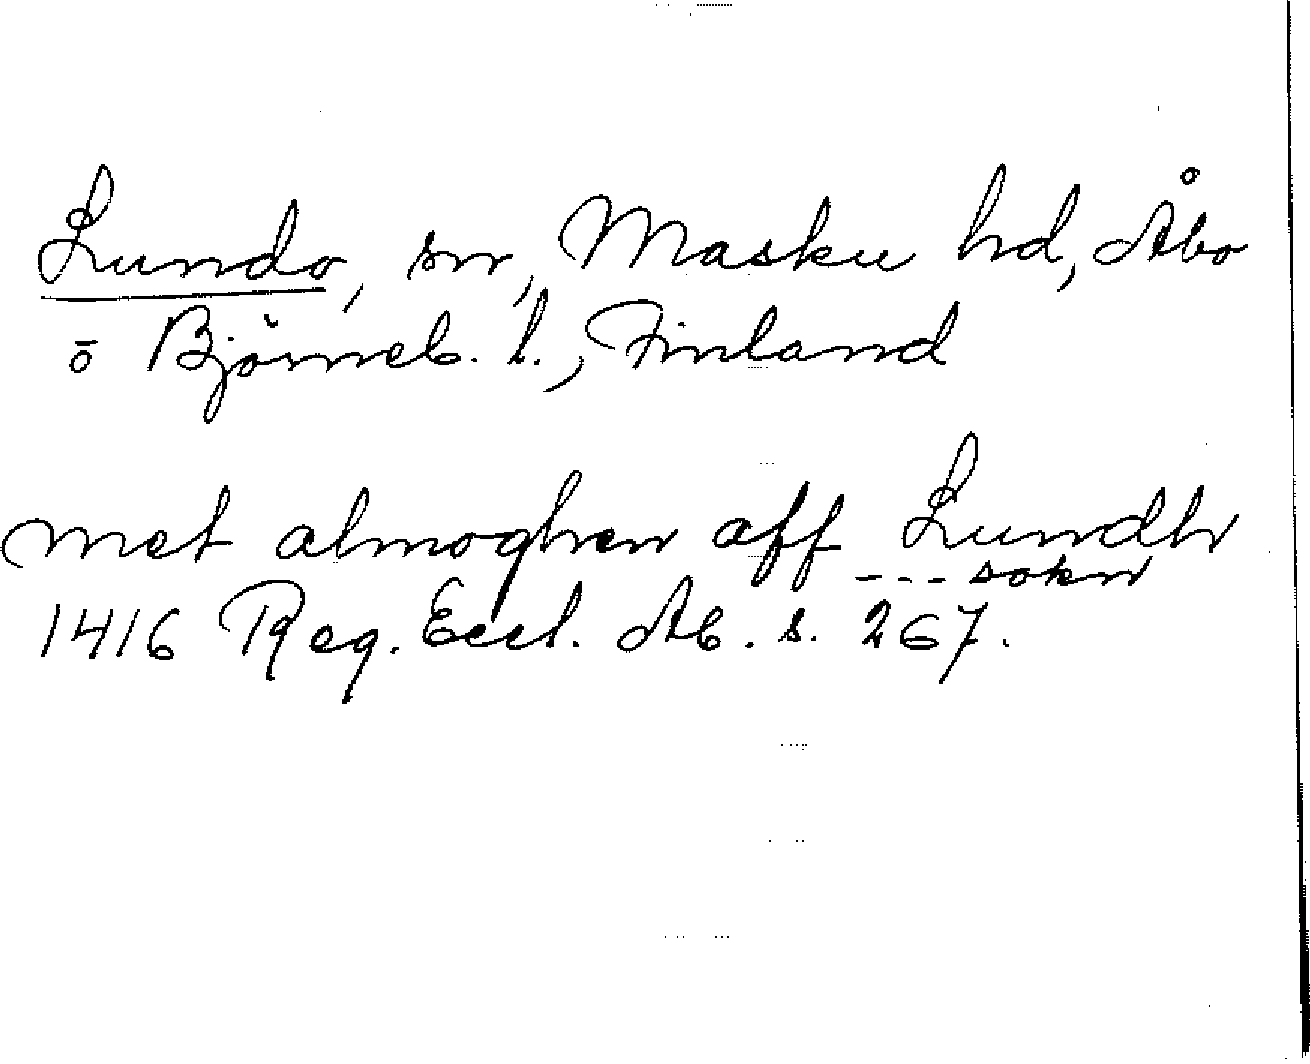 Lundo, sn, Masku hd, Åbo
o Björneb. l., Finland
met almoghen aff Lundh
--- sokn
1416 Reg. Eccl. Ab. s. 267.